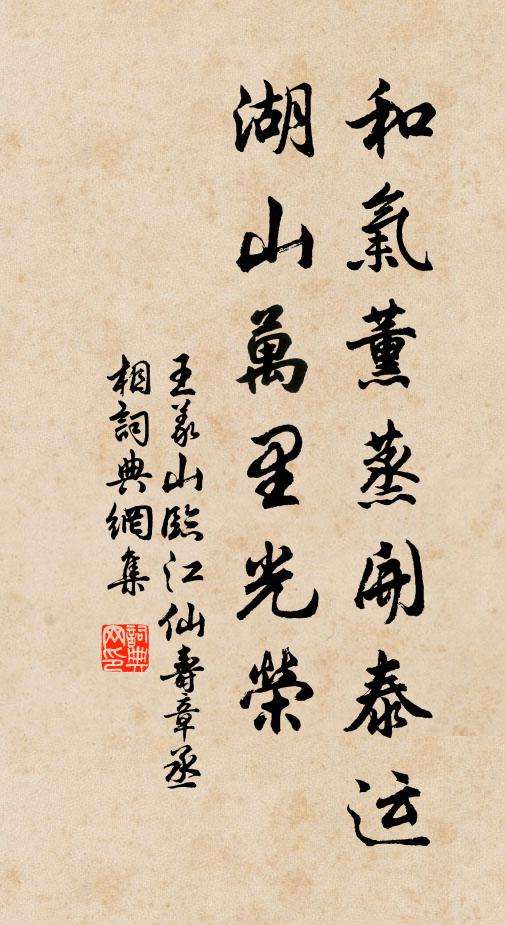 和氣薰蒸開泰运
湖山萬里光榮
王義山臨江仙壽章丞
相詞典網集
詞典網印